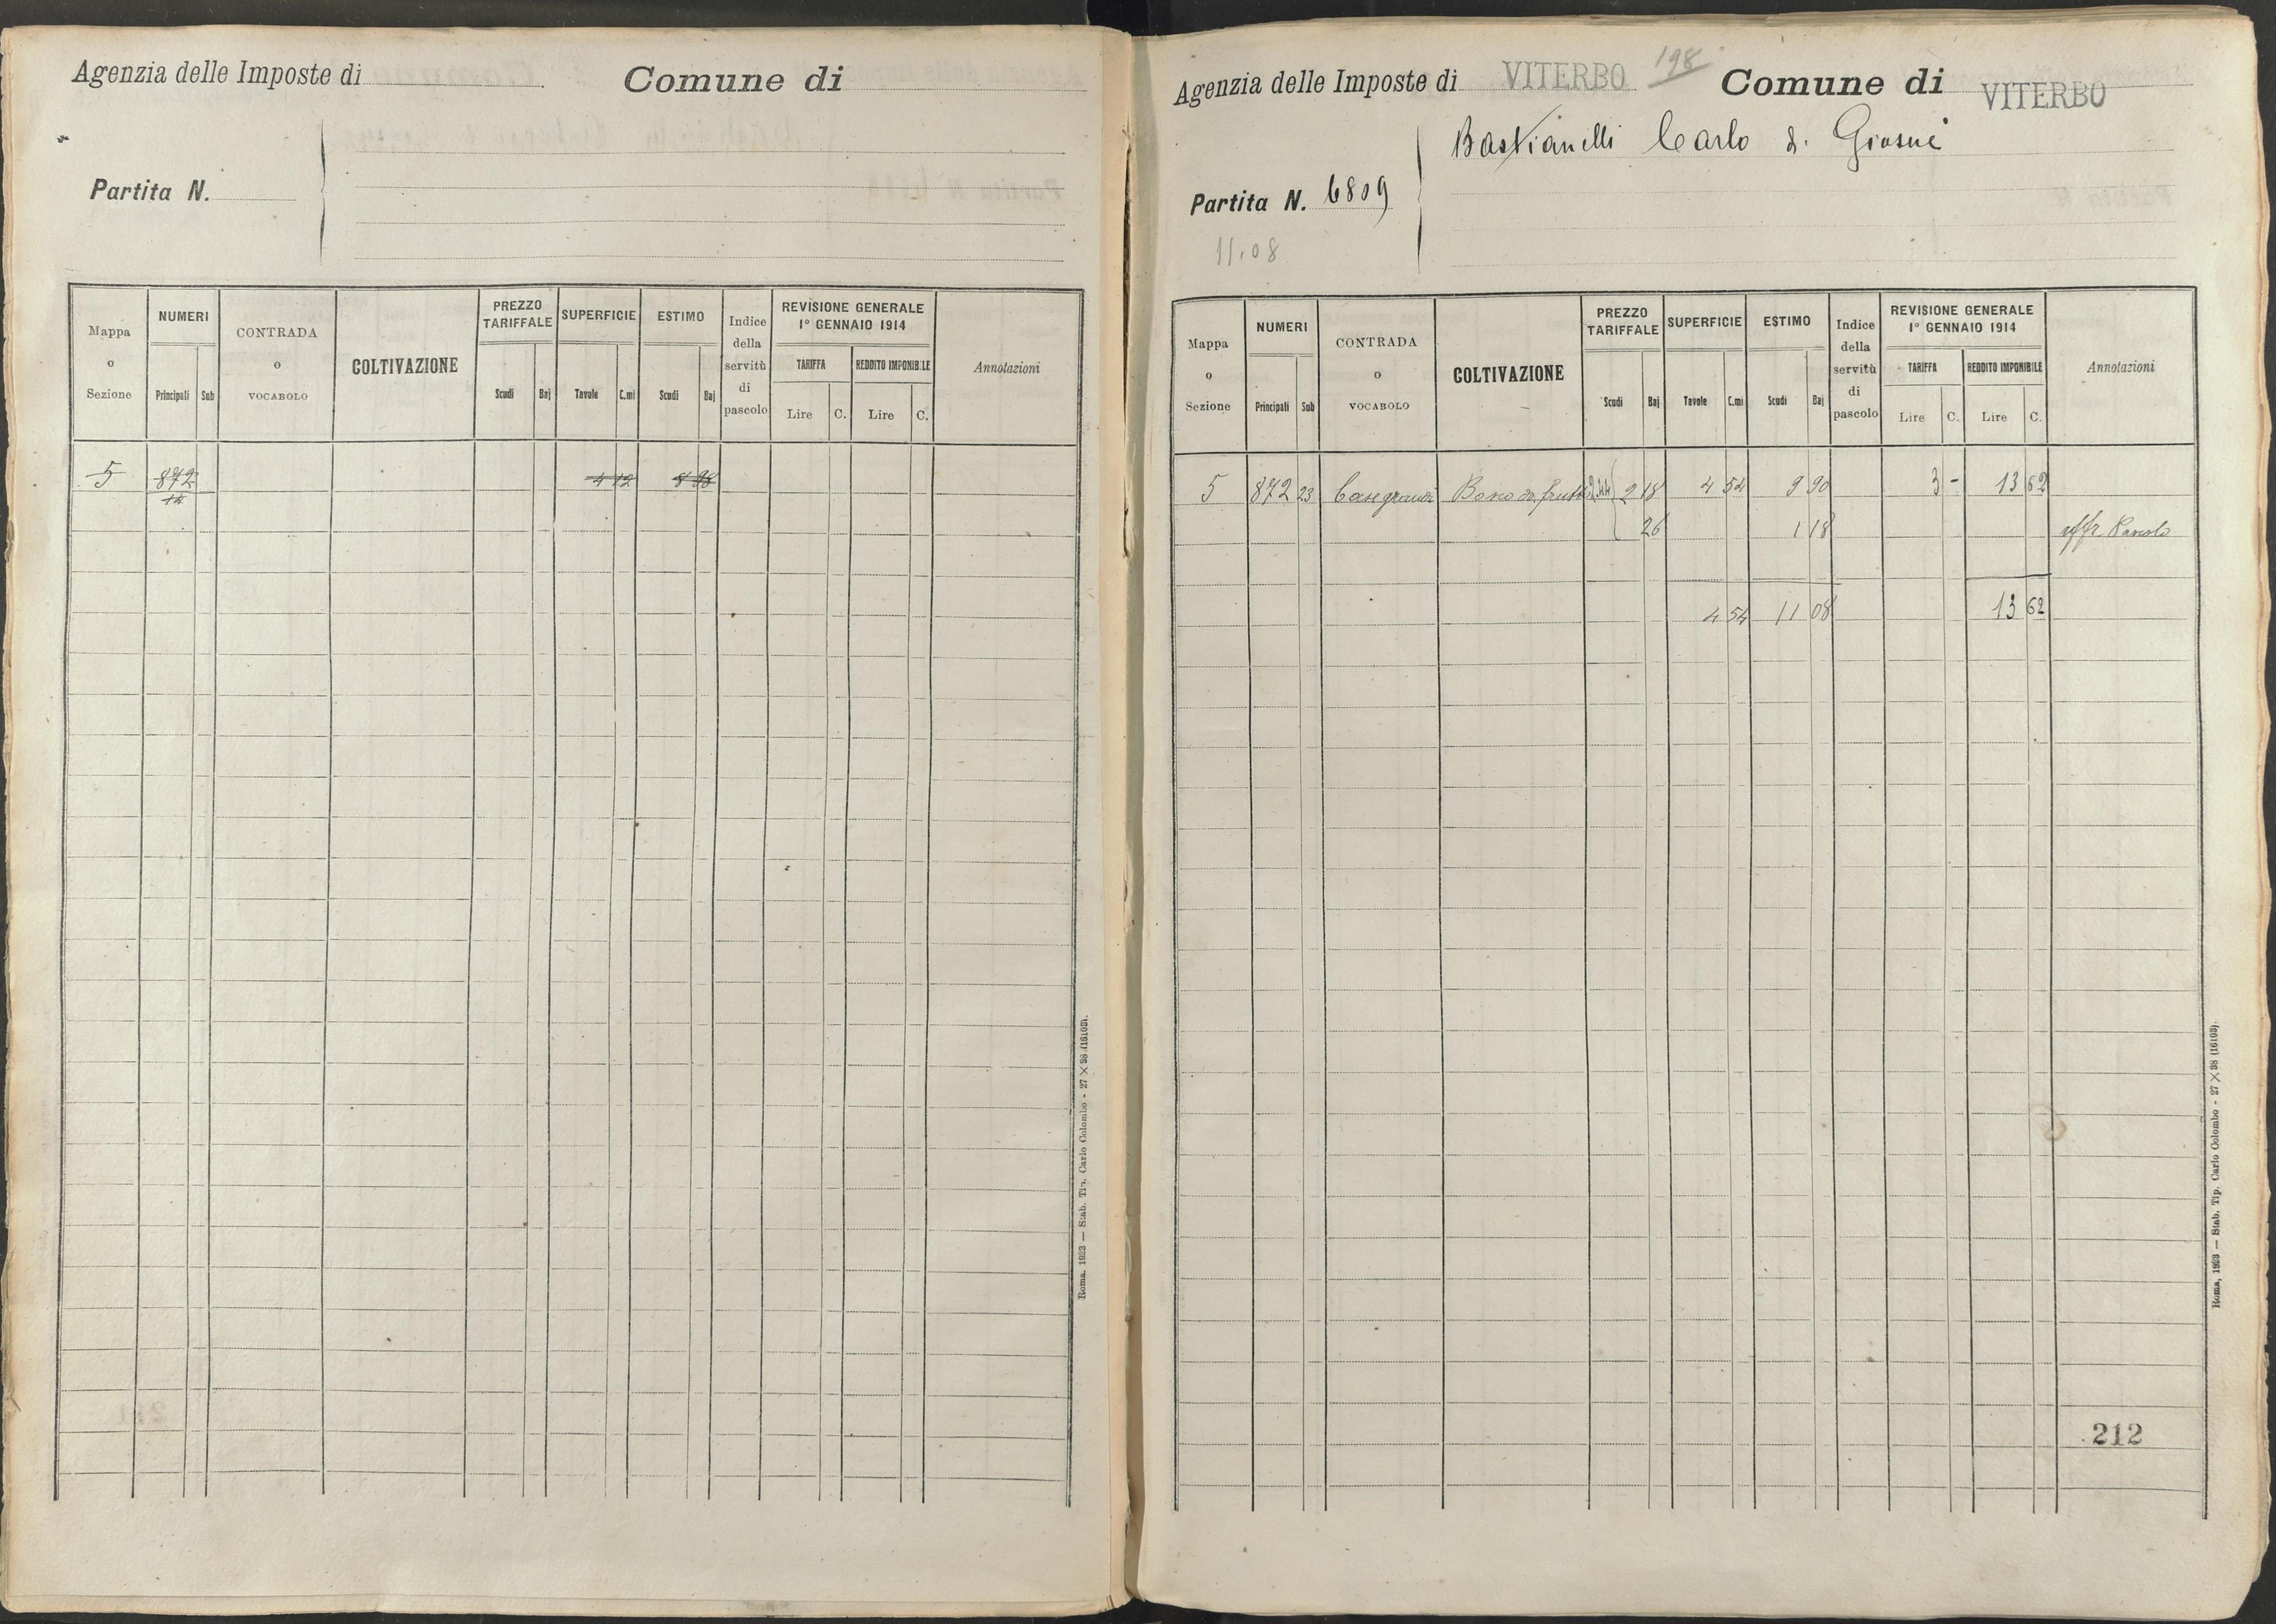 Agenzia delle Imposte di
Comune di
Partita N.
Mappa o Sezione
NUMERI
Principali
Sub
CONTRADA o VOCABOLO
COLTIVAZIONE
PREZZO TARIFFALE
Scudi
Baj
SUPERFICIE
Tavole
C.mi
ESTIMO
Scudi
Baj
Indice della servitù di pascolo
REVISIONE GENERALE 1° GENNAIO 1914
TARIFFA
Lire
C.
REDDITO IMPONIBILE
Lire
C.
Annotazioni
5 872 4 12
14
Roma, 1923 — Stab. Tip. Carlo Colombo - 27 × 38 (16103).
198
Agenzia delle Imposte di VITERBO Comune di VITERBO
Bastianelli Carlo di Giosuè
Partita N. 6809
11.08
Mappa o Sezione
NUMERI
Principali
Sub
CONTRADA o VOCABOLO
COLTIVAZIONE
PREZZO TARIFFALE
Scudi
Baj
SUPERFICIE
Tavole
C.mi
ESTIMO
Scudi
Baj
Indice della servitù di pascolo
REVISIONE GENERALE 1° GENNAIO 1914
TARIFFA
Lire
C.
REDDITO IMPONIBILE
Lire
C.
Annotazioni
5 872 23 Casegrandi Bosco da frutto 2.44 2 18 4 54 9 90 3 - 13 62
26 1 18 affr. Pascolo
4 54 11 08 13 62
212
Roma, 1923 — Stab. Tip. Carlo Colombo - 27 × 38 (16103).